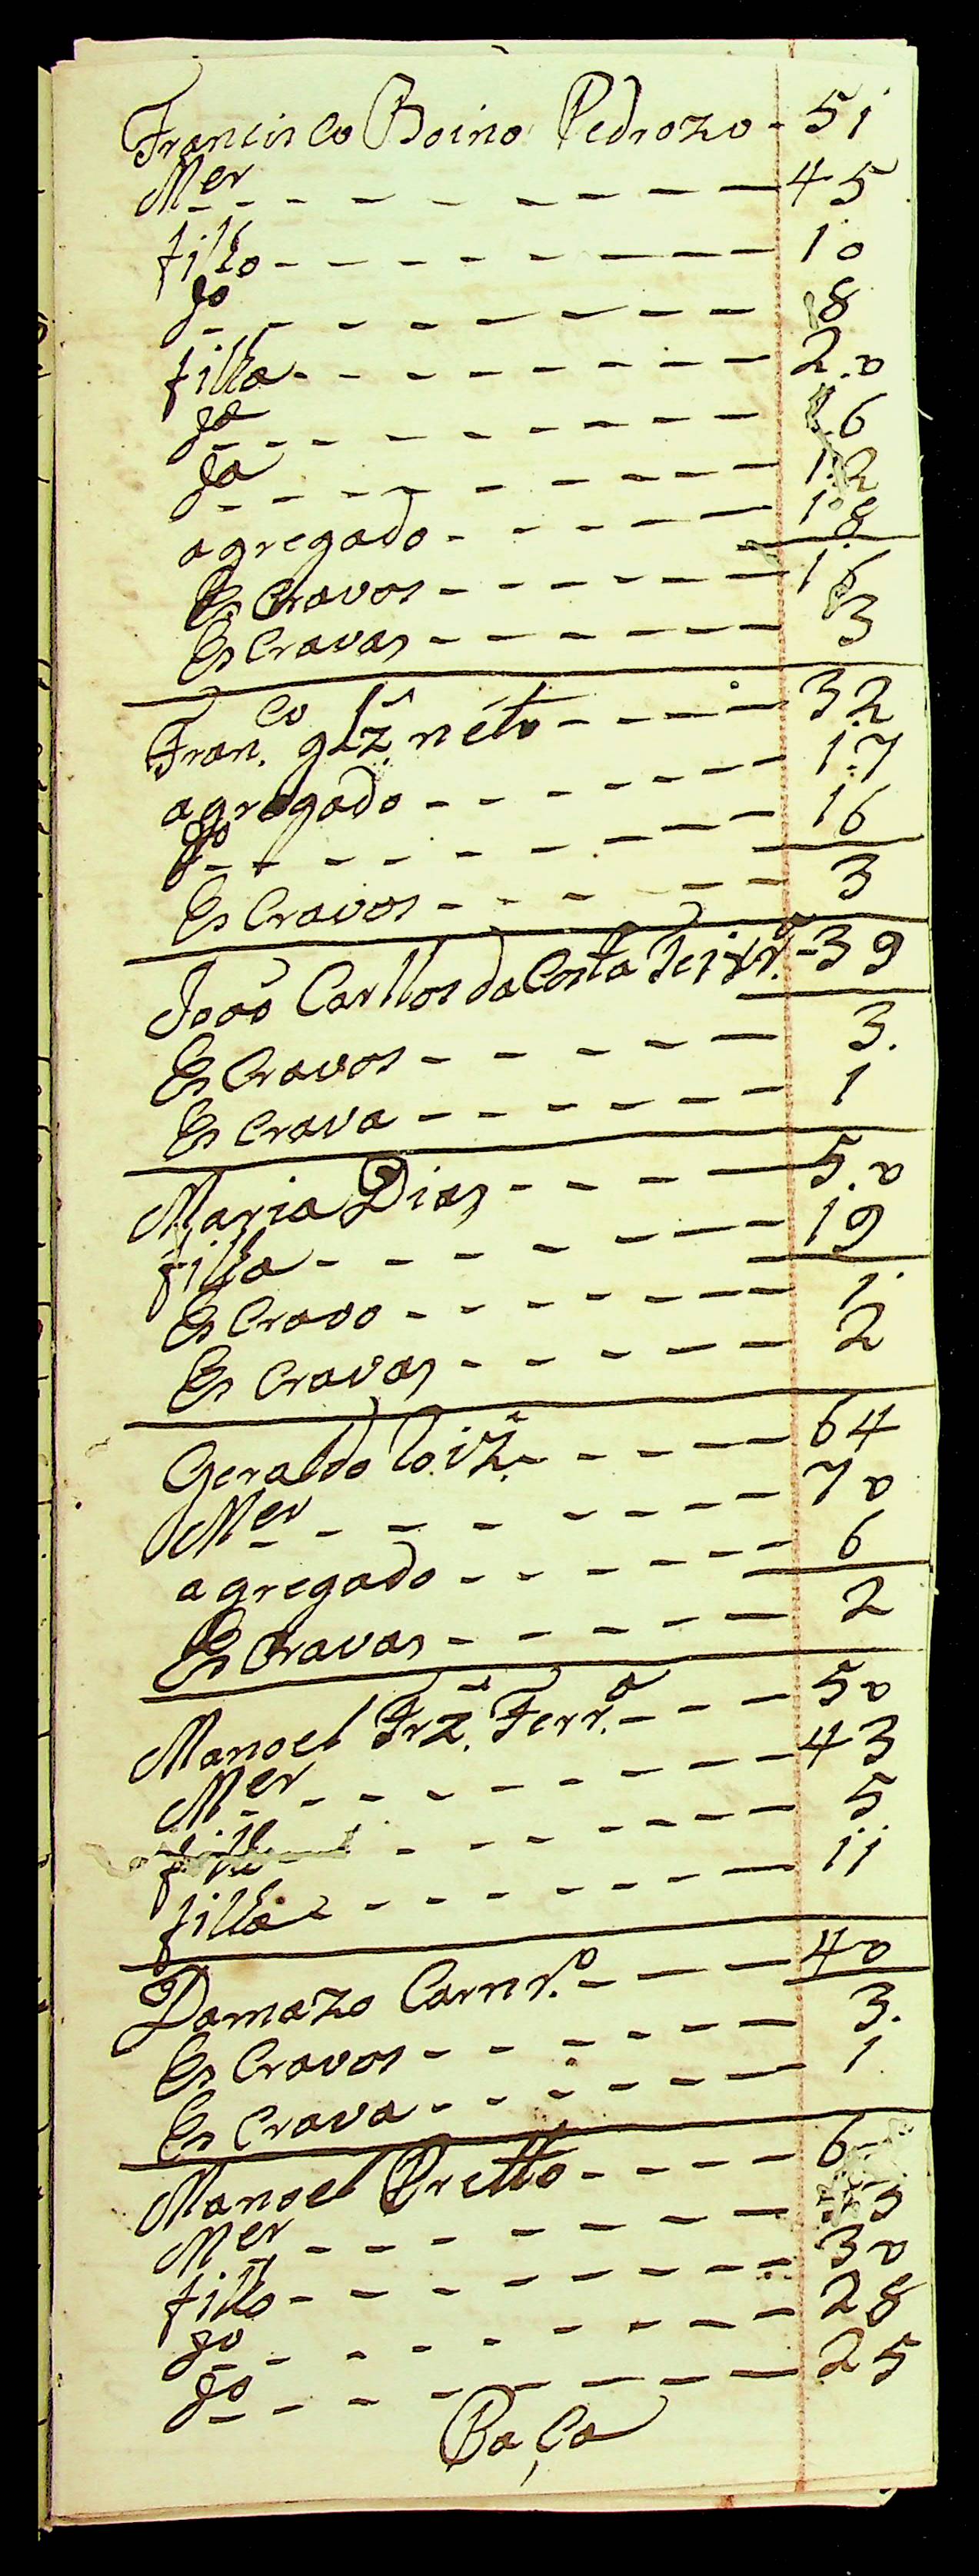 Francisco Boino Pedrozo - 51
Mer 45
fillo 10
fo 8
filla 20
fa 16
fa 12
agregado 18
EsCravos 16
EsCravas 3
Fran.co glz. neto 32
agregado 17
fo 16
EsCravos 3
João Carllos da Costa Feirr.a 39
EsCravos 3.
EsCrava 1
Maria Dias 50
filla 19
EsCravo 1
EsCravas 2
Geraldo 64
Mer 70
agregado 6
EsCravas 2
Manoel Frz. Ferr.a 50
Mer 43
5
filla 11
Damazo Carnr.o 40
EsCravos 3.
EsCrava 1
Manoel Pretto
Mer
fillo 30
fo 28
fo 25
Paça